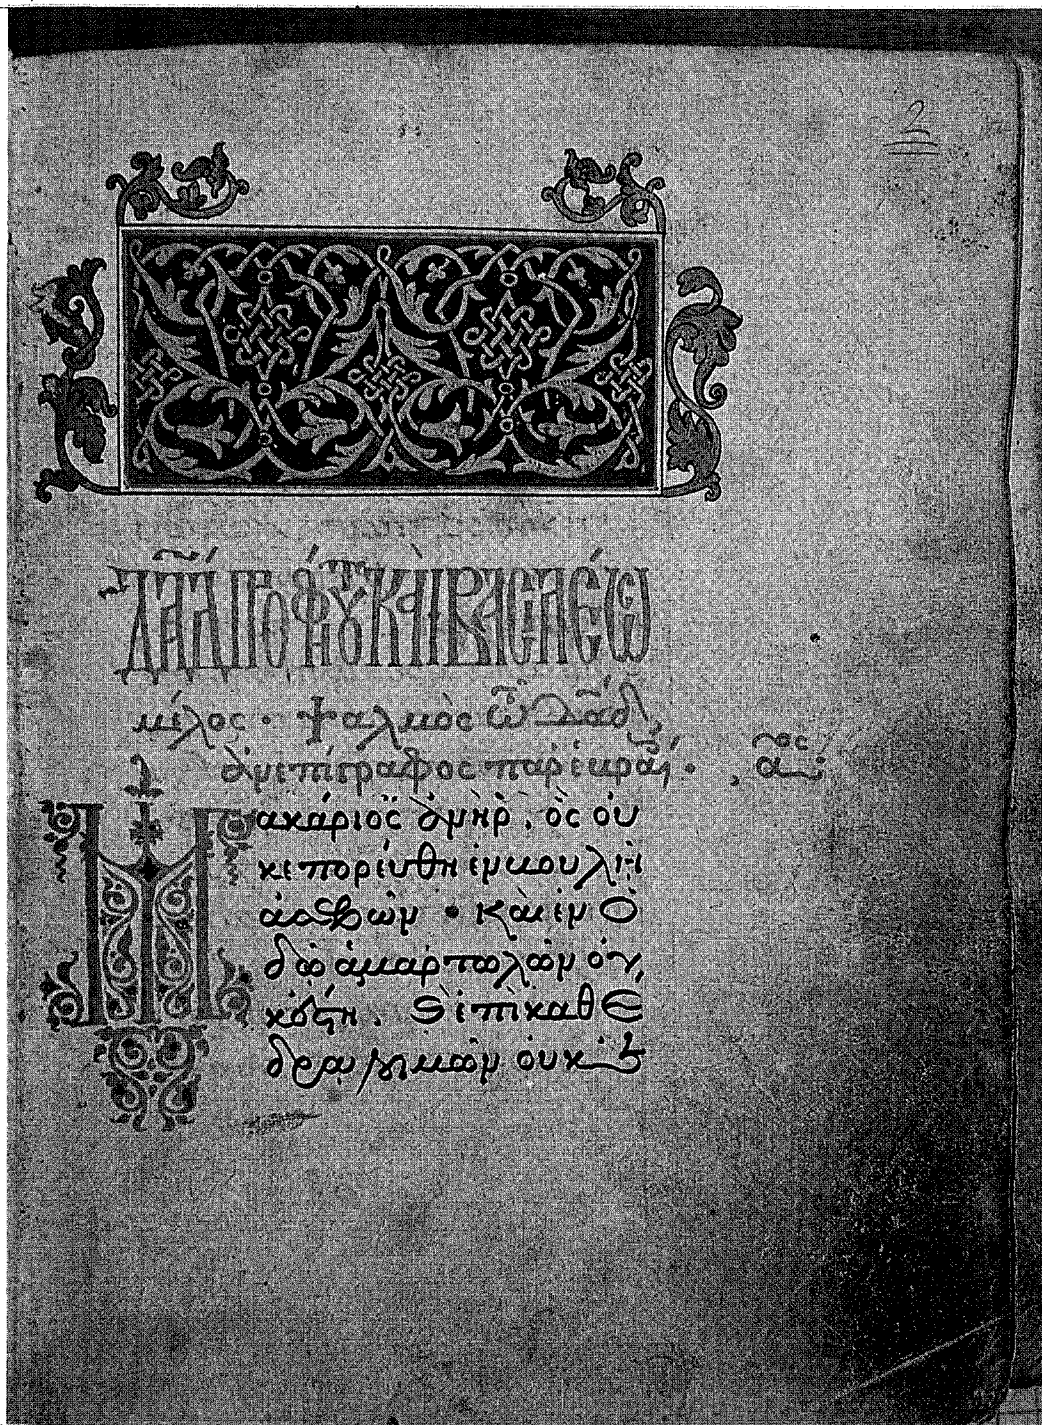 2
ΔΑΔ ΠΡΟΦΗΤΟΥ ΚΑΙ ΒΑCΙΛΕΩC
μέλος · ψαλμὸς τῶ δαδ
ἀνεπίγραφος παρ' ἑβραί · α ος
Μακάριος ἀνὴρ, ὃς οὐ
κ ἐπορεύθη ἐν βουλῆ
ἀσεβῶν · καὶ ἐν ὁ
δῶ ἁμαρτωλῶν οὐ
κ ἔστη. S ἐπὶ καθέ
δρα λοιμῶν οὐκ ἐ